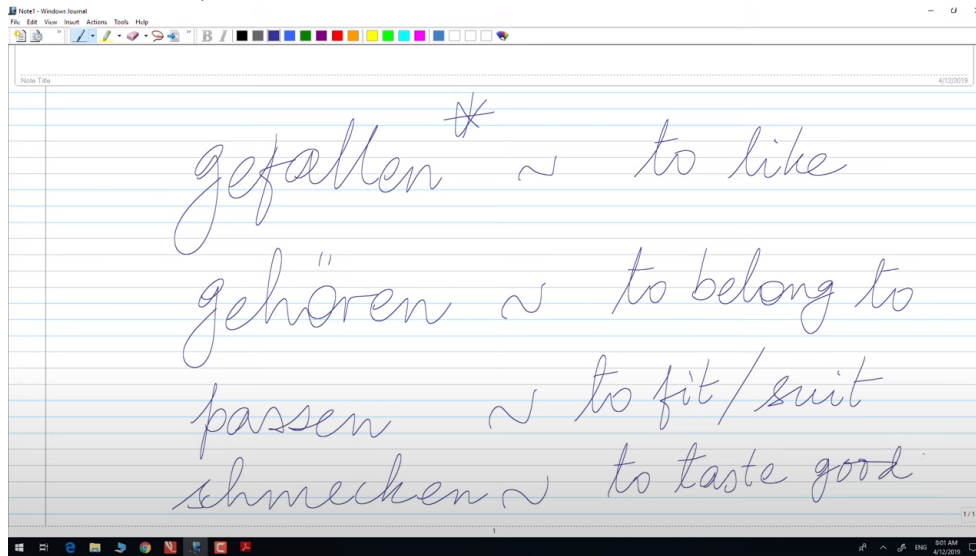 Note1 - Windows Journal
File Edit View Insert Actions Tools Help
Note Title
4/12/2019
gefallen* ~ to like
gehören ~ to belong to
passen ~ to fit/suit
schmecken ~ to taste good
1
1/1
ENG
8:01 AM
4/12/2019